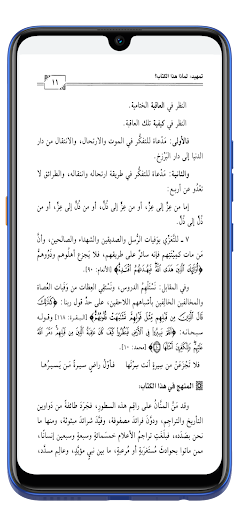 تمهيد: لماذا هذا الكتاب؟
١٦
النظر في العاقبة الختامية.
النظر في كيفية تلك العاقبة.
فالأولى: مَدْعاة للتفكُّر في الموت والارتحال، والانتقال من دار
الدنيا إلى دار البَرْزخ.
والثانية: مَدْعاة للتفكر في طريقة ارتحاله وانتقاله، والطرائق لا
تعْدُو عن أربع:
إما من عِزٍّ إلى عِزٍّ، أو من عِزٍّ إلى ذُلٍّ، أو من ذُلٍّ إلى عِزٍّ، أو من
ذُلٍّ إلى ذُلٍّ.
٧ ـ للتعزِّي بوَفَيات الرسل والصديقين والشهداء والصالحين، وأنَّ
من مات كمِيْتَتِهم فإنه سائرٌ على طريقهم، فلا يَجزع أهلُوهم وذَوُوهمْ
﴿أُوْلَٰئِكَ ٱلَّذِينَ هَدَى ٱللَّهُ فَبِهُدَىٰهُمُ ٱقْتَدِهْ﴾ [الأنعام: ٩٠].
وفي المقابل: نَسْتَلْهِمُ الدروس، ونَستقي العِظات من وَفَيات العُصاة
والمخالفين الخالفين بأشباههم اللاحقين، على حدِّ قول ربنا: ﴿كَذَٰلِكَ
قَالَ ٱلَّذِينَ مِن قَبْلِهِم مِّثْلَ قَوْلِهِمْ تَشَٰبَهَتْ قُلُوبُهُمْ﴾ [البقرة: ١١٨] وقوله
سبحانه: ﴿أَفَلَمْ يَسِيرُوا۟ فِى ٱلْأَرْضِ فَيَنظُرُوا۟ كَيْفَ كَانَ عَٰقِبَةُ ٱلَّذِينَ مِن قَبْلِهِمْ دَمَّرَ ٱللَّهُ
عَلَيْهِمْ وَلِلْكَٰفِرِينَ أَمْثَٰلُهَا﴾ [محمد: ١٠].
فلا تَجْزَعَنْ من سِيرةٍ أنتَ سِرْتَها فأوَّلُ راضٍ سيرةً مَن يَسيرُها
المنهج في هذا الكتاب:
وقد مَنَّ المنَّانُ على راقِم هذه السطور، فجَرَدَ طائفةً من دواوين
التأريخ والتراجم، ودوَّنَ فرائدَ مصفوفة، وقيَّد شرائدَ مبثوثة، ومنها ما
نحن بصدَده، فبلغَتْ تراجمُ الأعلام خمسَمائةٍ وسبعةٍ وسبعين إنسانًا،
ممن ماتوا بحوادثَ مُستغرَبةٍ أو مُرعبةٍ، ما بين نبيٍّ مؤيَّد، وعالمٍ مسدَّد،